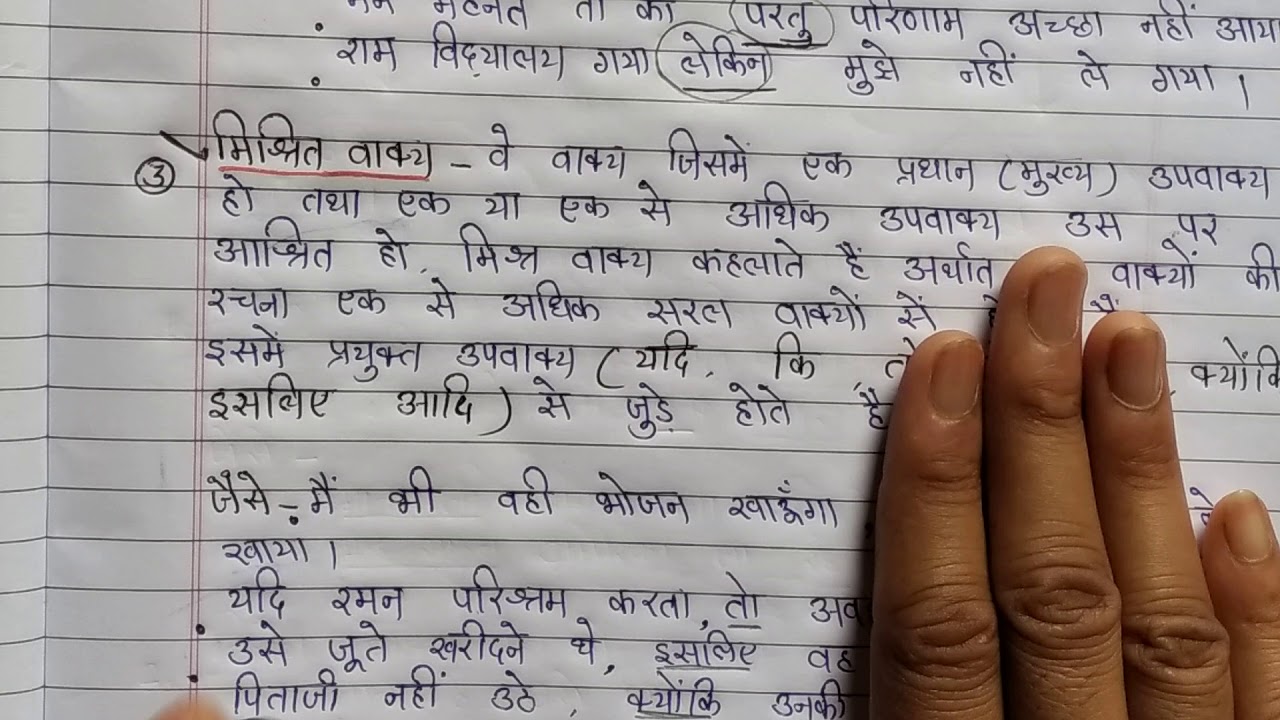 मेहनत तो की परंतु परिणाम अच्छा नहीं आया
राम विद्यालय गया लेकिन मुझे नहीं ले गया ।
③ मिश्रित वाक्य - वे वाक्य जिसमें एक प्रधान (मुख्य) उपवाक्य
हो तथा एक या एक से अधिक उपवाक्य उस पर
आश्रित हो, मिश्र वाक्य कहलाते हैं अर्थात वाक्यों की
रचना एक से अधिक सरल वाक्यों सें
इसमें प्रयुक्त उपवाक्य (यदि, कि, क्योंकि
इसलिए आदि) से जुड़े होते
जैसे - मैं भी वही भोजन खाऊँगा
खाया ।
यदि रमन परिश्रम करता, तो
उसे जूते खरीदने थे, इसलिए वह
पिताजी नहीं उठे, क्योंकि उनकी